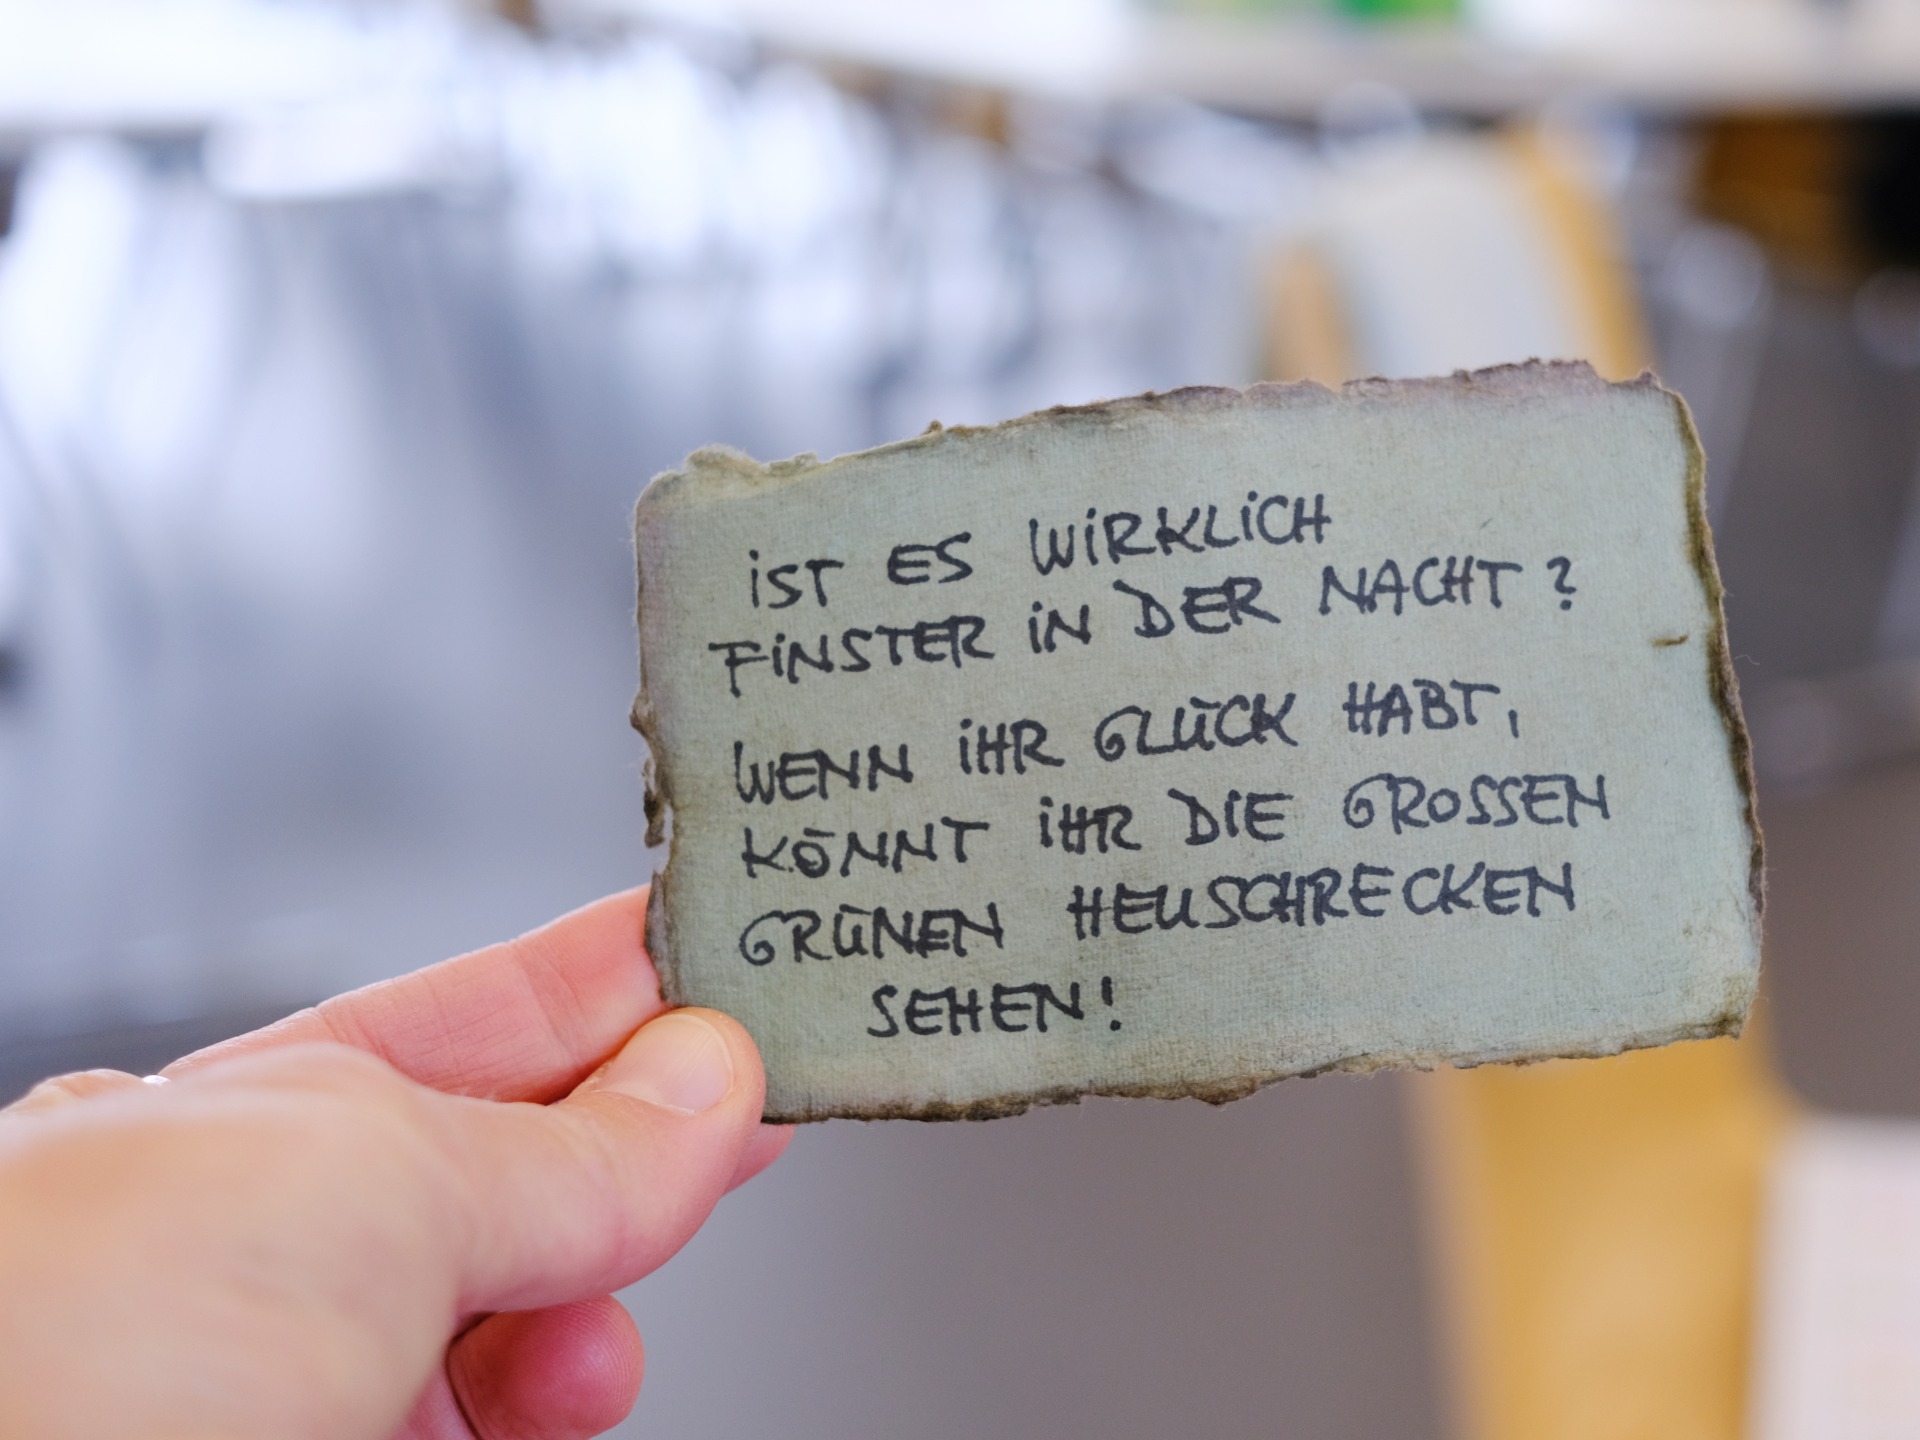 iST ES WiRKLiCH
FiNSTER iN DER NACHT?
WENN iHR GLÜCK HABT,
KÖNNT iHR DiE GROSSEN
GRÜNEN HEUSCHRECKEN
SEHEN!